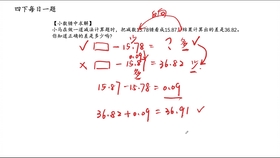 四下每日一题
【小数错中求解】
小马在做一道减法计算题时，把减数15.78错看成15.87结果计算出的差是36.82，
你知道正确的差是多少吗？
✓ □ - 15.78 = ?
0.09
✗ □ - 15.87 = 36.82
15.87 - 15.78 = 0.09
36.82 + 0.09 = 36.91 ✓